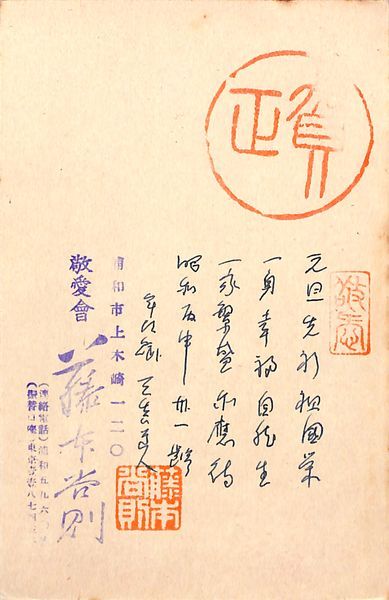 賀正
敬愛
元旦先祈祖國榮
一身幸福自然生
一家繁盛亦應得
昭和丙申卅一
藤本尚則
浦和市上木崎一二〇
敬愛會 藤本尚則
(連絡電話)浦和五九六
(振替口座)東京 八七四